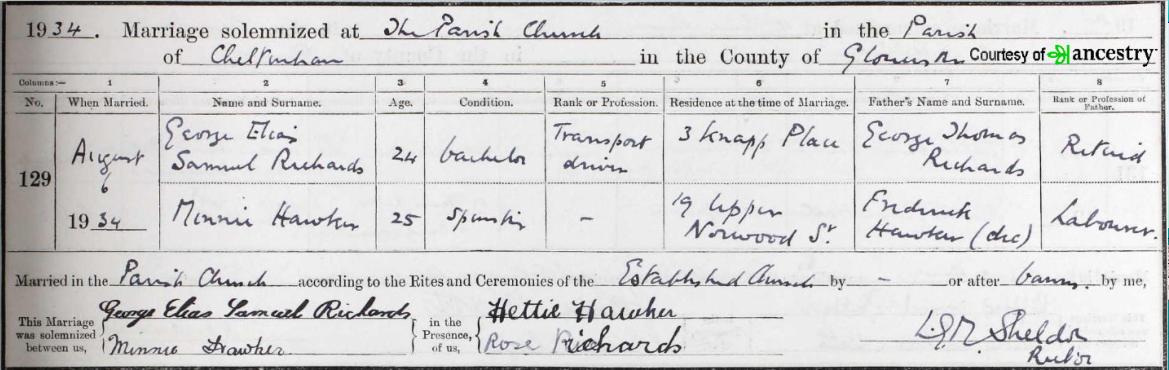 1934. Marriage solemnized at The Parish Church in the Parish
of Cheltenham in the County of Courtesy of ancestry
Columns:— 1 2 3 4 5 6 7 8
No. When Married. Name and Surname. Age. Condition. Rank or Profession. Residence at the time of Marriage. Father's Name and Surname. Rank or Profession of Father.
129 August 6 1934
George Elias Samuel Richards 24 bachelor Transport driver 3 Knapp Place George Thomas Richards Retired
Minnie Hawker 25 Spinster – 19 Upper Norwood St. Frederick Hawker (dec) Labourer.
Married in the Parish Church according to the Rites and Ceremonies of the Established Church by – or after banns. by me,
This Marriage was solemnized between us,
George Elias Samuel Richards
Minnie Hawker.
in the Presence, of us,
Hettie Hawker
Rose Richards
Sheldon
Rector